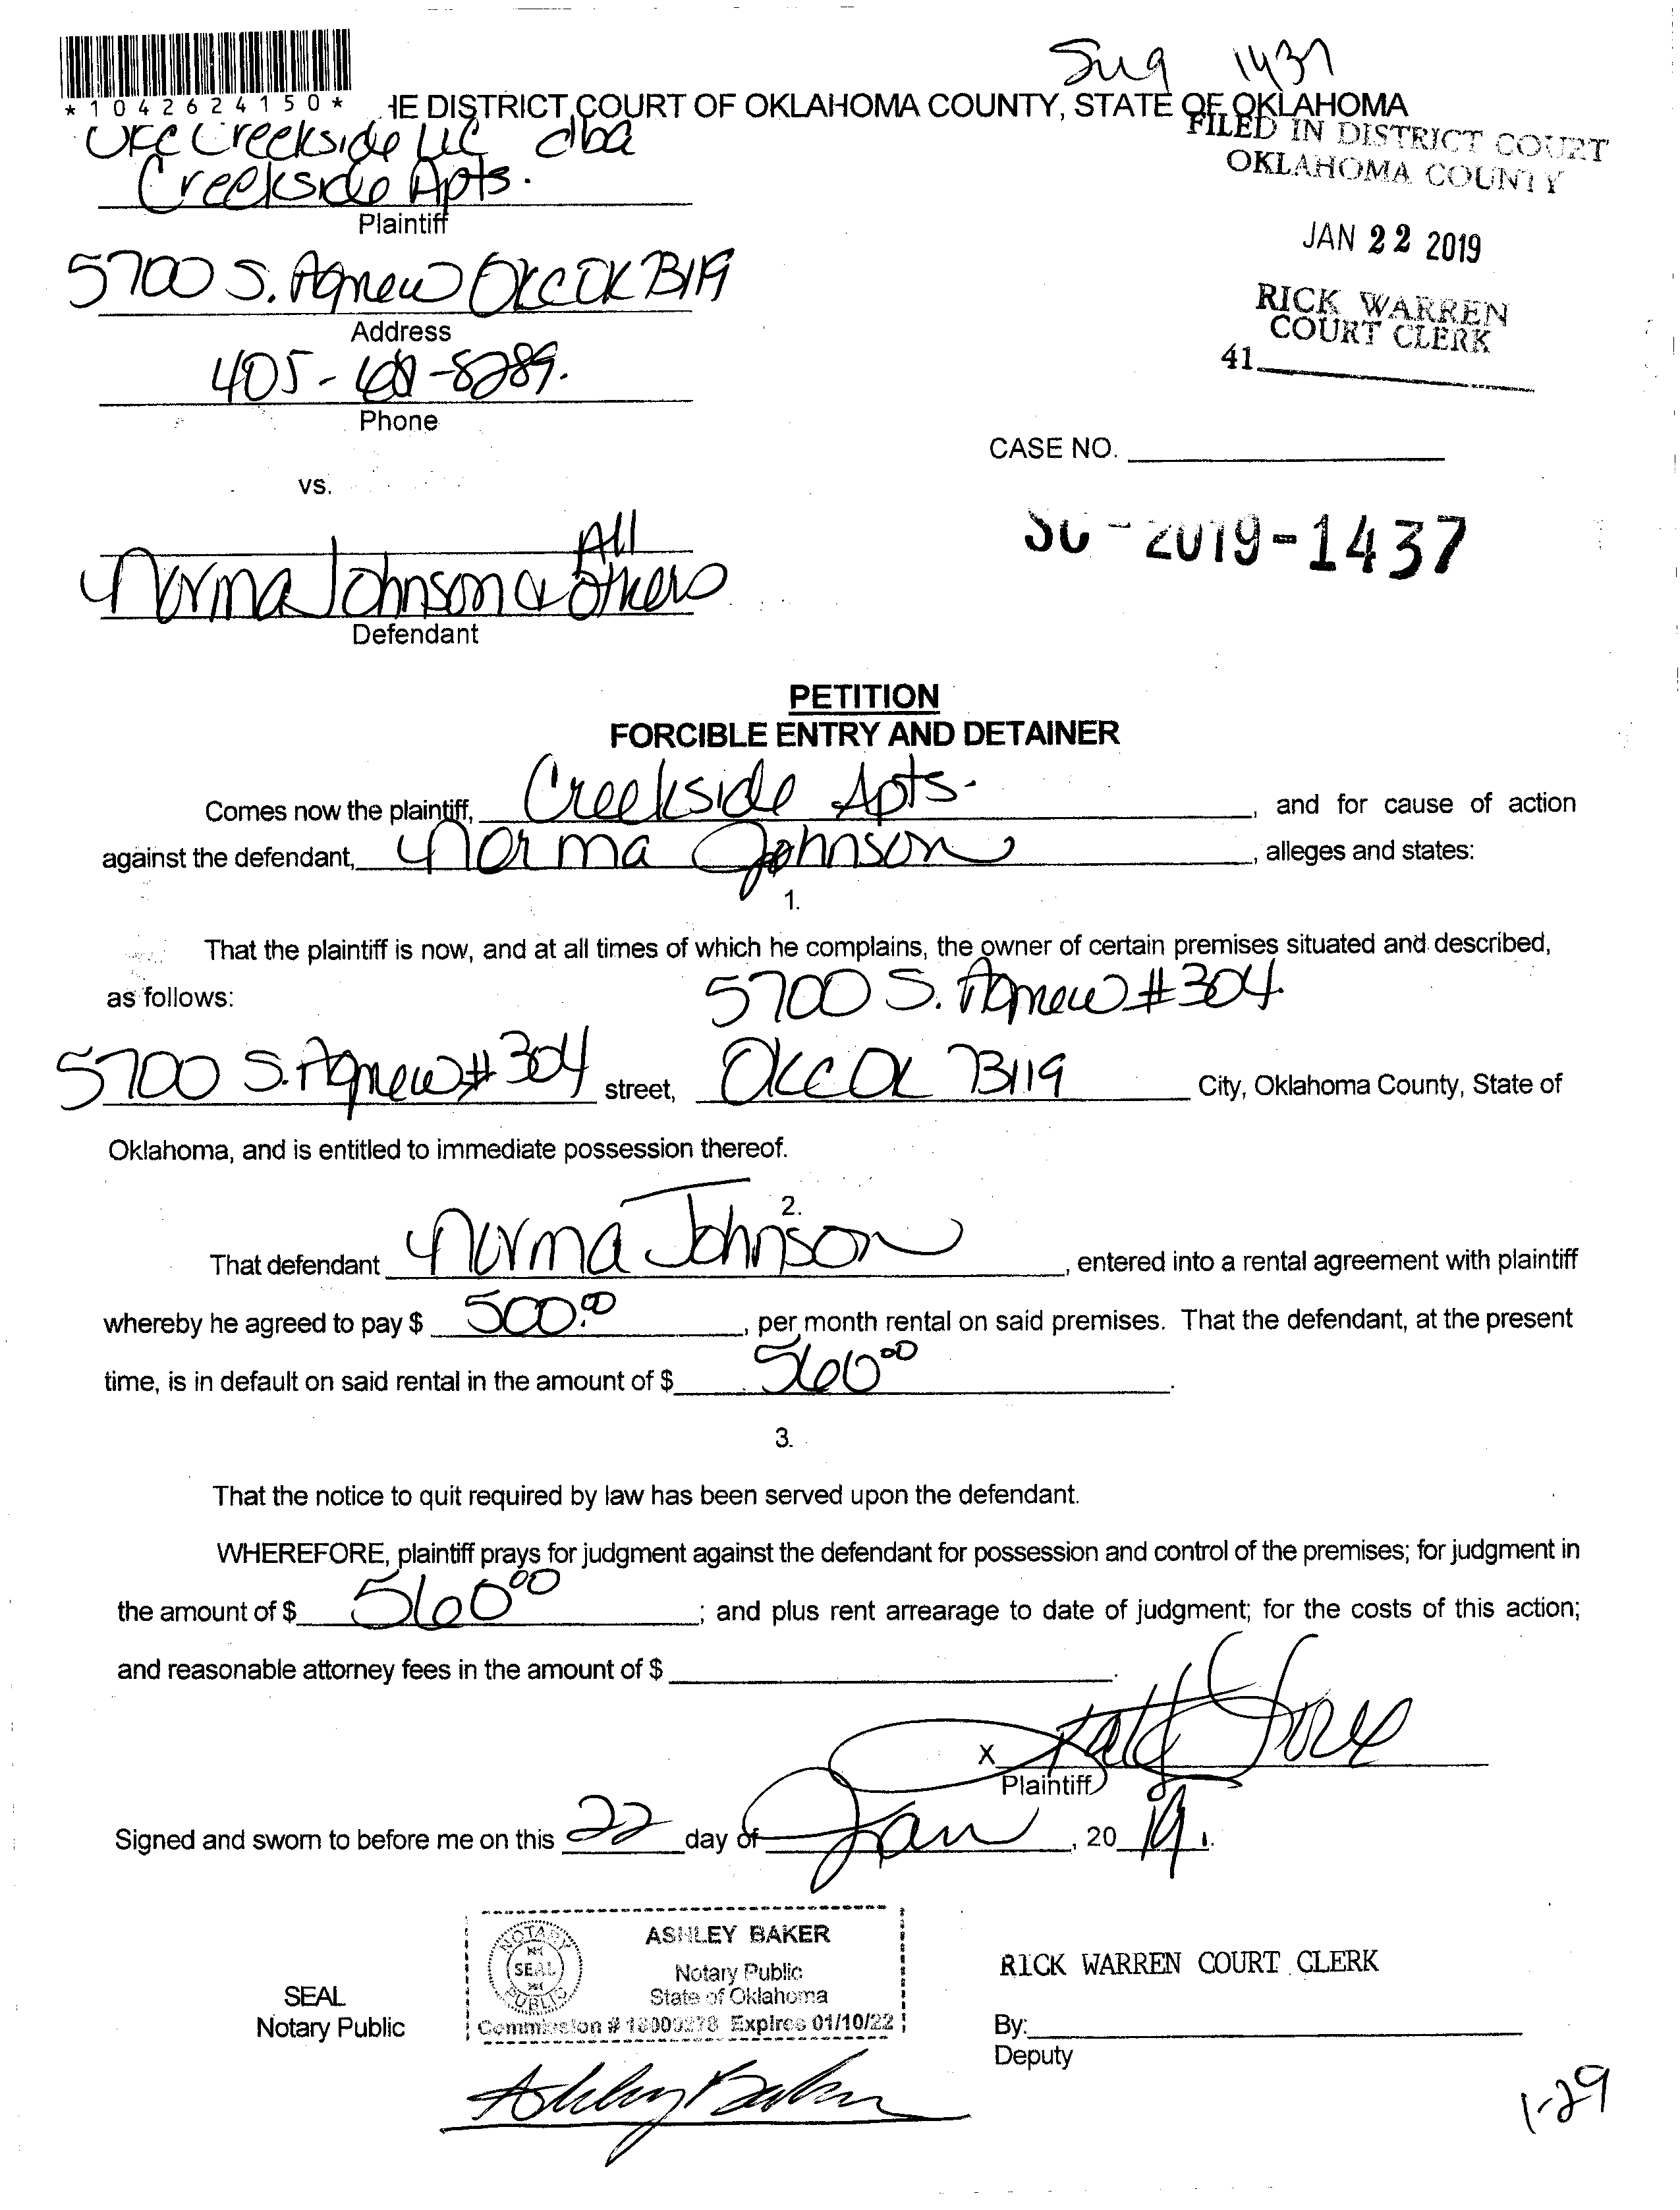 Sug 1437
*1042624150*
HE DISTRICT COURT OF OKLAHOMA COUNTY, STATE OF OKLAHOMA
OKC Creekside LLC dba
Creekside Apts.
Plaintiff
FILED IN DISTRICT COURT
OKLAHOMA COUNTY
JAN 22 2019
RICK WARREN
COURT CLERK
41
5700 S. Agnew OKC OK 73119
Address
405- -8289.
Phone
CASE NO.
vs.
SC-2019-1437
All
Norma Johnson & Others
Defendant
PETITION
FORCIBLE ENTRY AND DETAINER
Comes now the plaintiff, Creekside Apts. , and for cause of action
against the defendant, Norma Johnson , alleges and states:
1.
That the plaintiff is now, and at all times of which he complains, the owner of certain premises situated and described,
as follows: 5700 S. Agnew #304
5700 S. Agnew #304 street, OKC OK 73119 City, Oklahoma County, State of
Oklahoma, and is entitled to immediate possession thereof.
2.
That defendant Norma Johnson , entered into a rental agreement with plaintiff
whereby he agreed to pay $ 500.00 , per month rental on said premises. That the defendant, at the present
time, is in default on said rental in the amount of $ 560 00 .
3.
That the notice to quit required by law has been served upon the defendant.
WHEREFORE, plaintiff prays for judgment against the defendant for possession and control of the premises; for judgment in
the amount of $ 560 00 ; and plus rent arrearage to date of judgment; for the costs of this action;
and reasonable attorney fees in the amount of $ .
X
Plaintiff
Signed and sworn to before me on this 22 day of Jan , 20 19 .
NOTARY PUBLIC
SEAL
ASHLEY BAKER
Notary Public
State of Oklahoma
Commission # 18000278 Expires 01/10/22
SEAL
Notary Public
Ashley Baker
RICK WARREN COURT CLERK
By:
Deputy
1-29